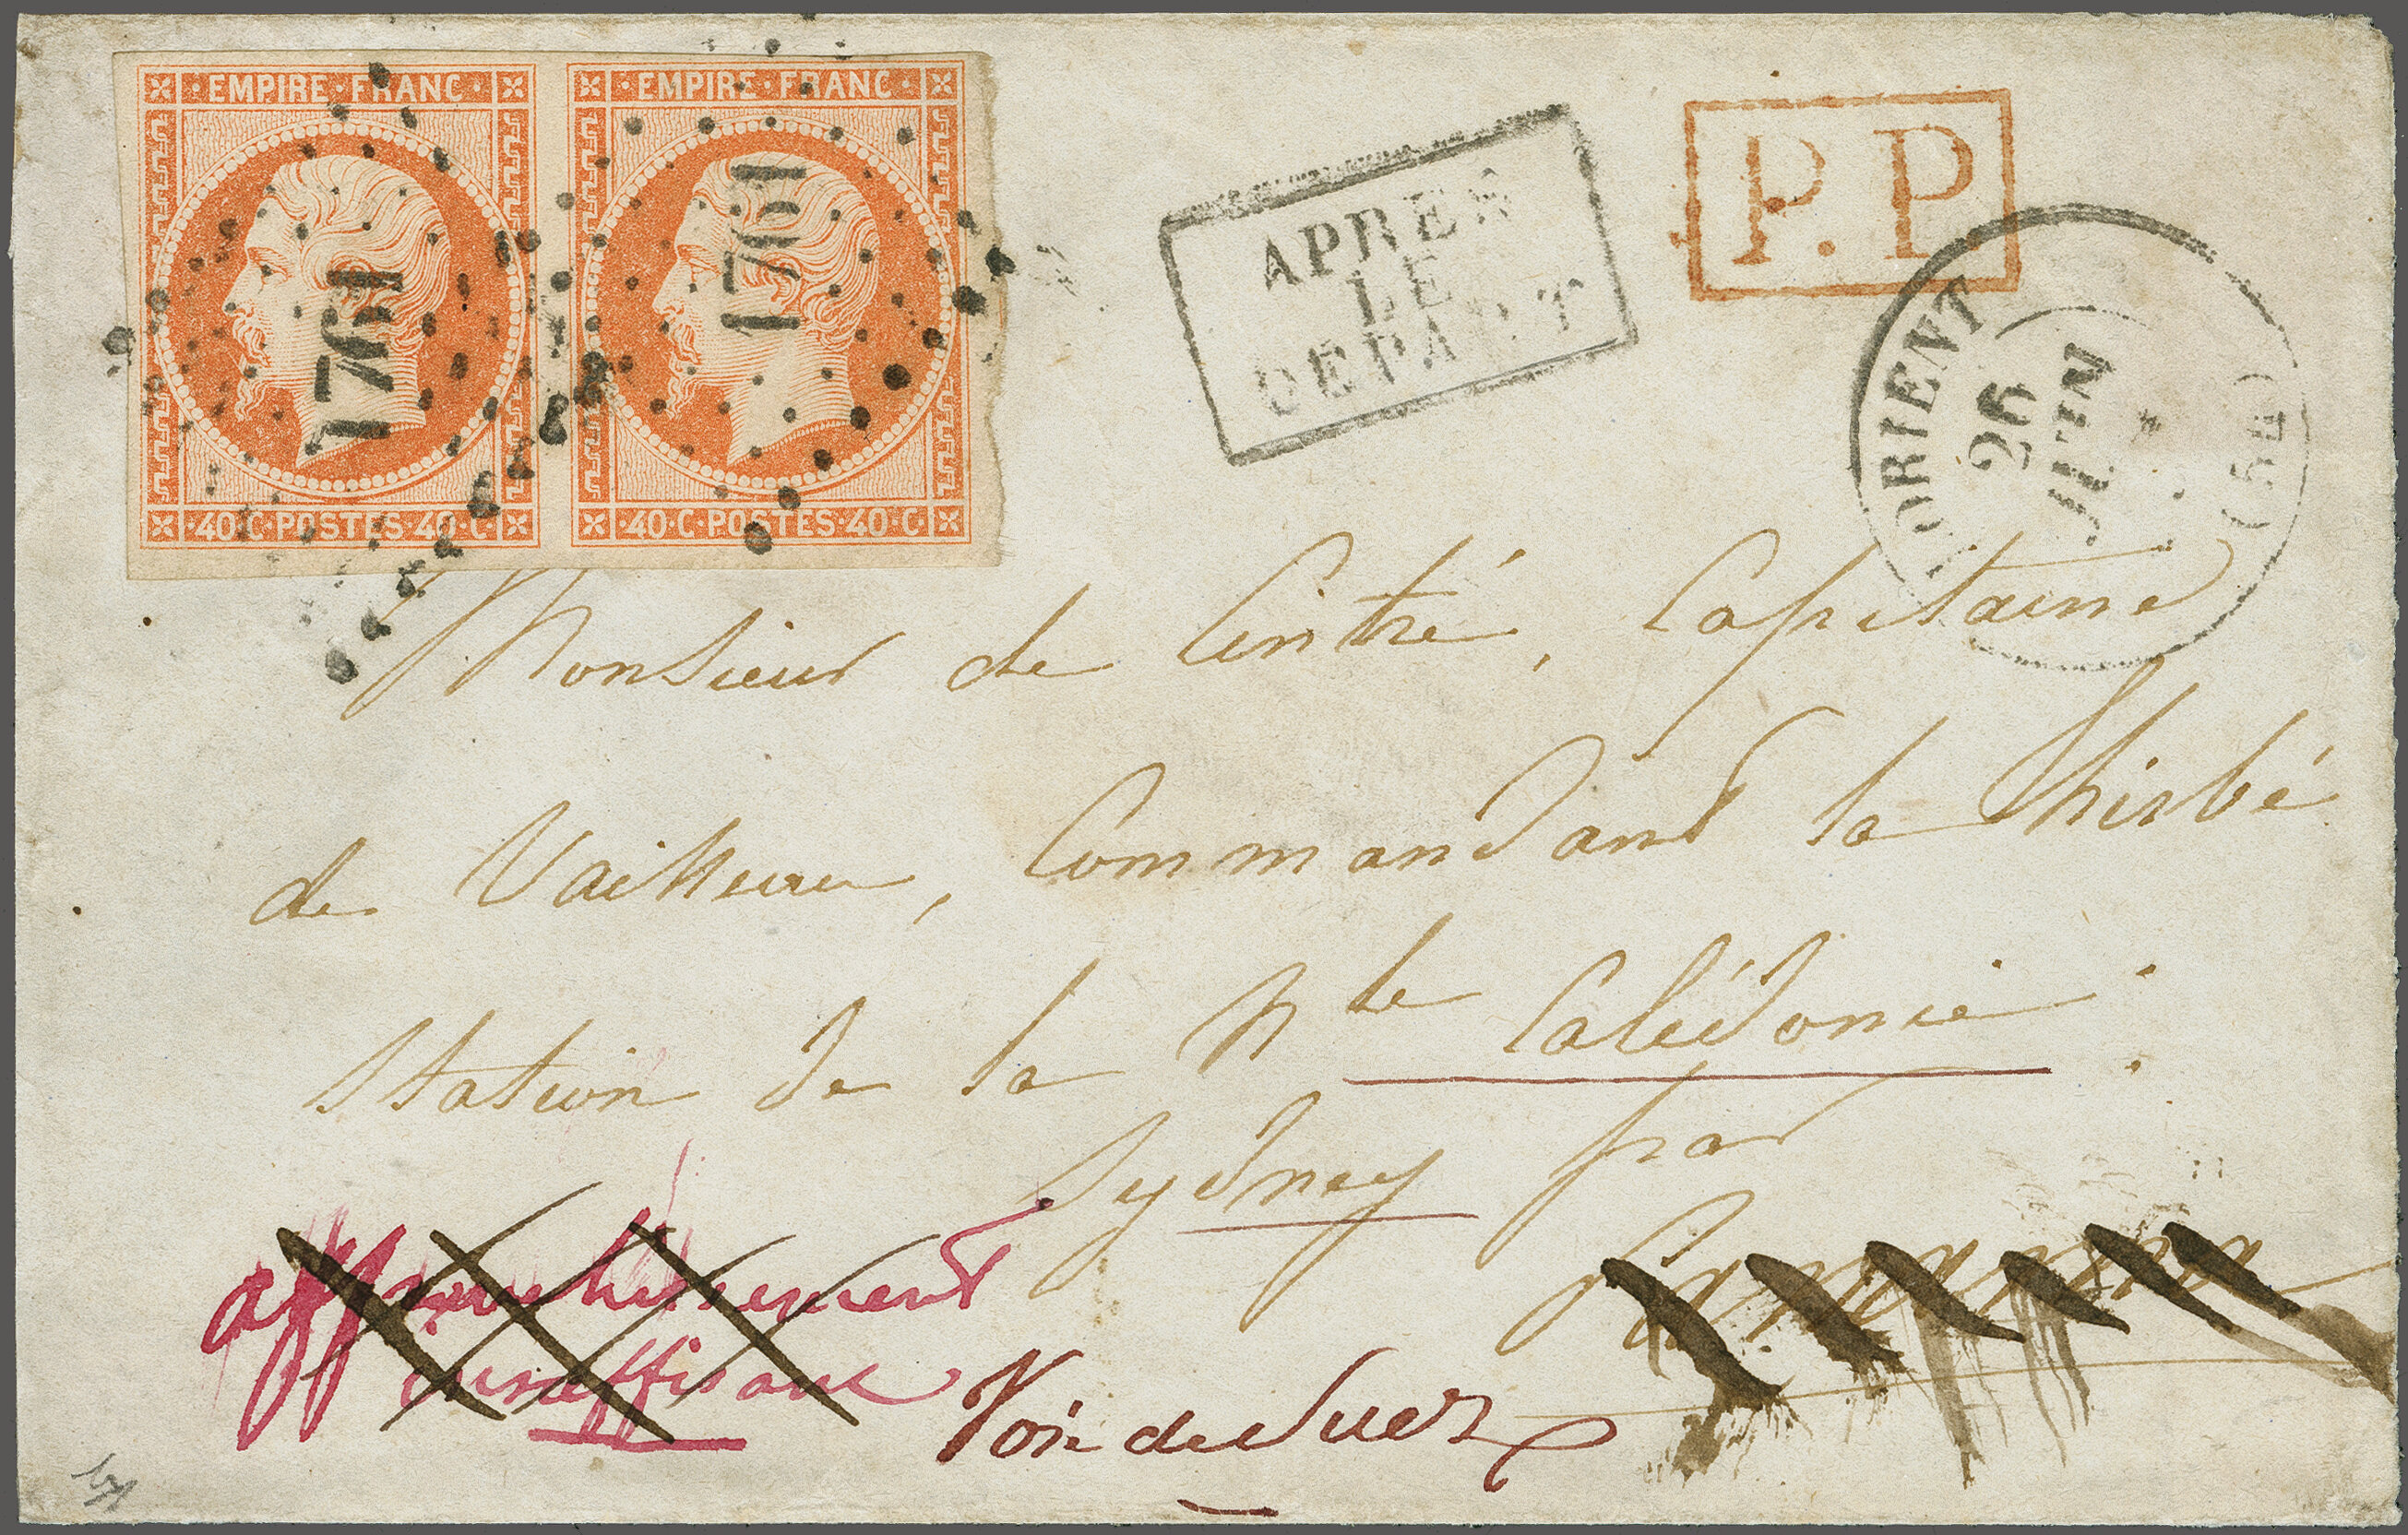 · EMPIRE · FRANC ·
1761
· 40 · C · POSTES · 40 · C ·
· EMPIRE · FRANC ·
1761
· 40 · C · POSTES · 40 · C ·
APRES
LE
DEPART
P.P.
LORIENT
26
JUIN
Monsieur de Cintré, Capitaine
de Vaisseau, Commandant la Thisbé
Station de la Nle Calédonie :
Sydney par
affranchissement
insuffisant
Voie de Suez